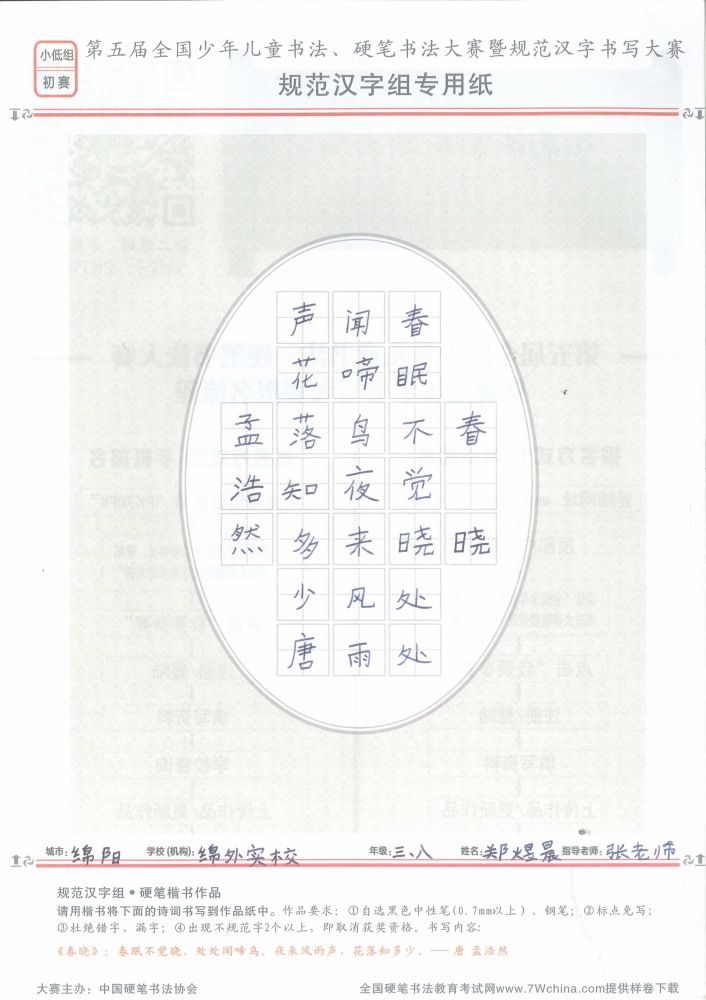 小低组
初赛
第五届全国少年儿童书法、硬笔书法大赛暨规范汉字书写大赛
规范汉字组专用纸
春 晓
春眠不觉晓处处
闻啼鸟夜来风雨
声花落知多少唐
孟浩然
城市：绵阳 学校(机构)：绵外实校 年级：三、八 姓名：郑煜晨 指导老师：张老师
规范汉字组•硬笔楷书作品
请用楷书将下面的诗词书写到作品纸中。作品要求：①自选黑色中性笔(0.7mm以上)、钢笔；②标点免写；
③杜绝错字、漏字；④出现不规范字2个以上，即取消获奖资格。书写内容：
《春晓》：春眠不觉晓，处处闻啼鸟。夜来风雨声，花落知多少。——唐 孟浩然
大赛主办：中国硬笔书法协会 全国硬笔书法教育考试网www.7Wchina.com提供样卷下载